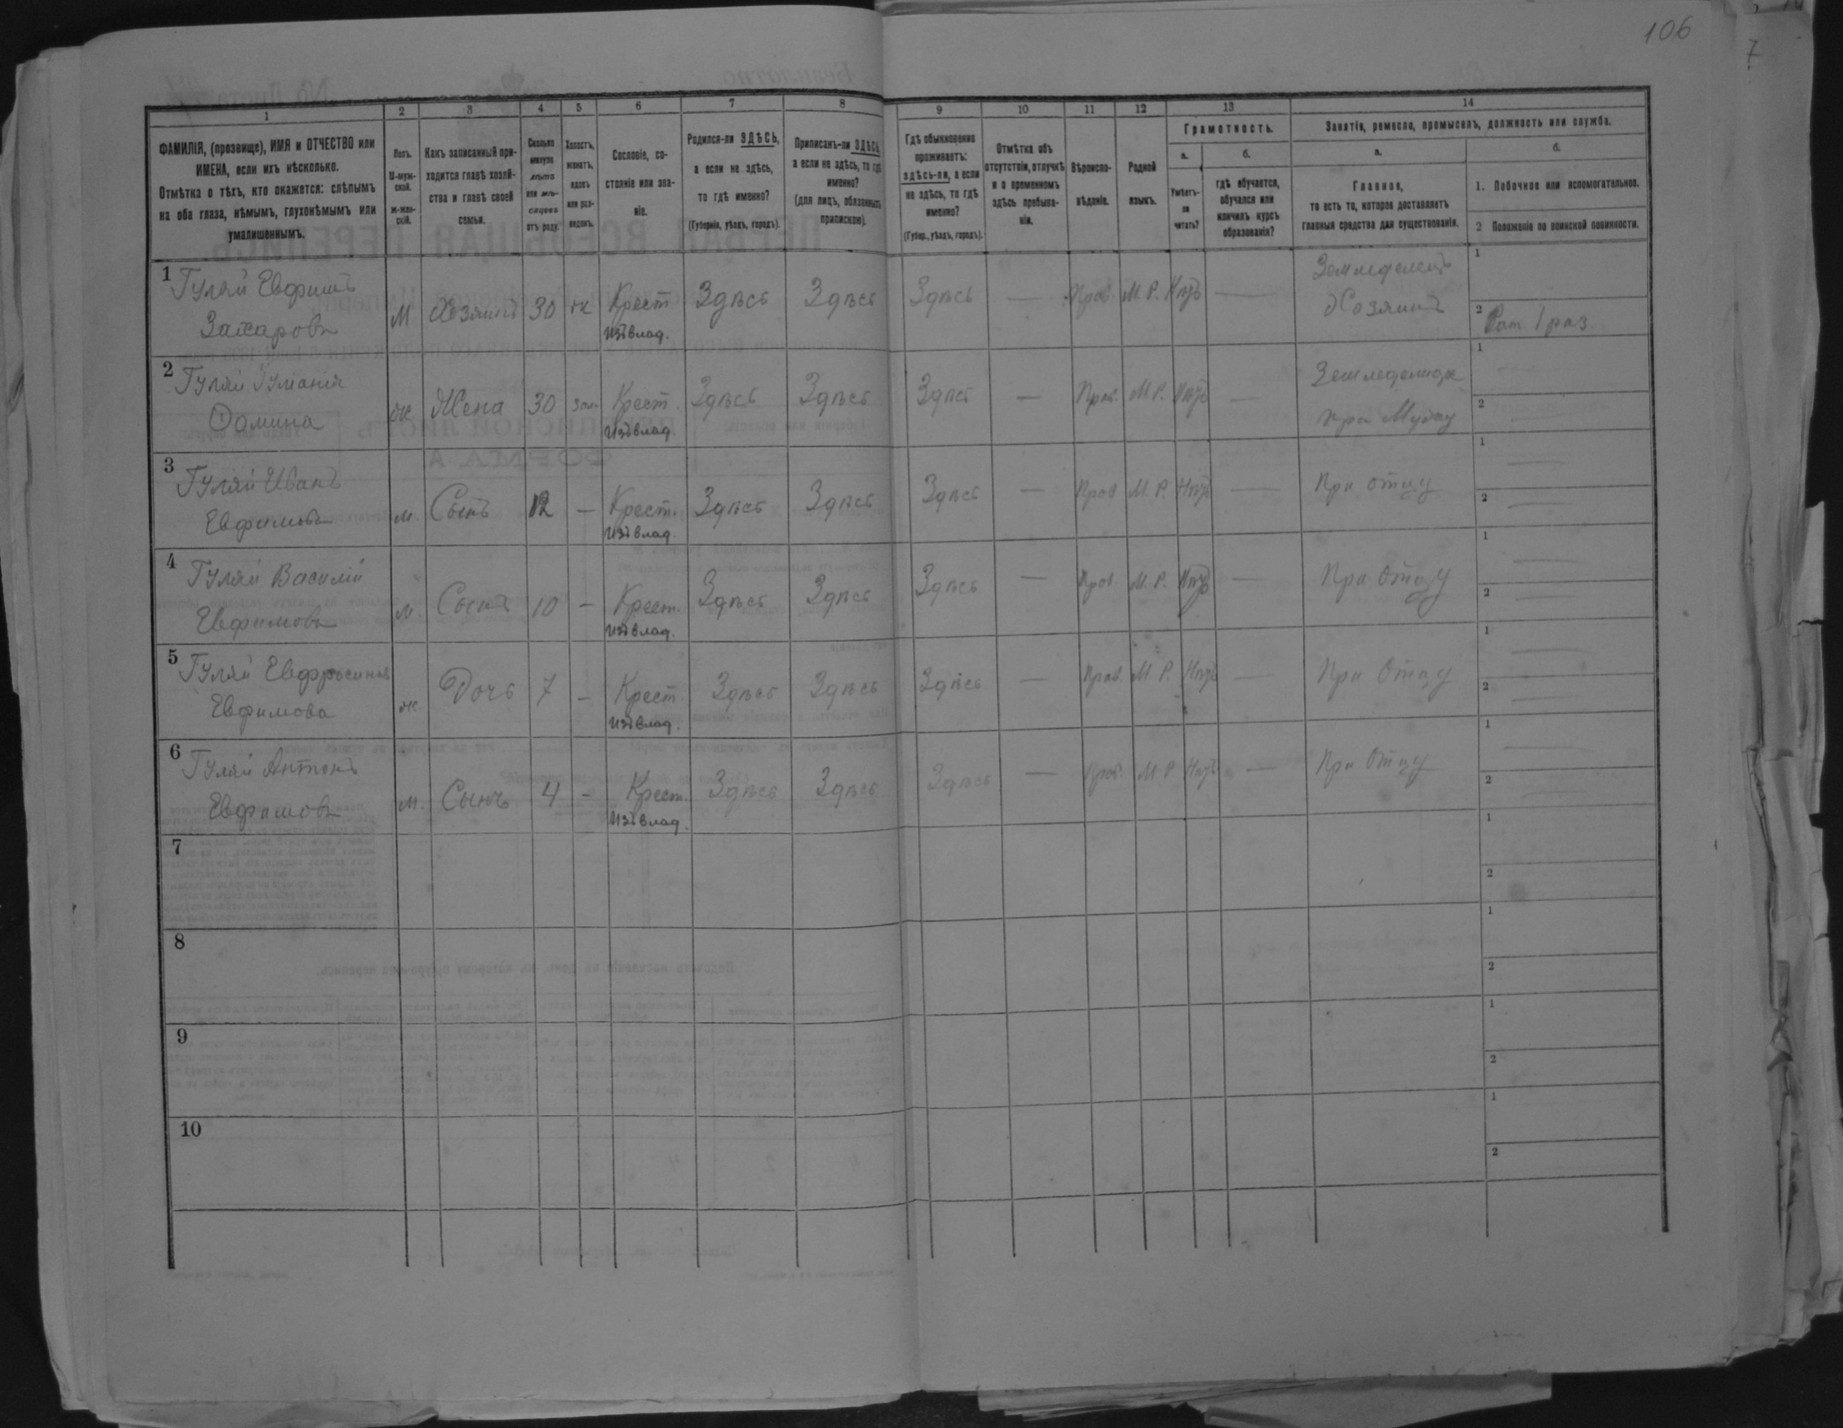 106
7
1
2
3
4
5
6
7
8
9
10
11
12
13
14
ФАМИЛІЯ, (прозвище), ИМЯ и ОТЧЕСТВО или
ИМЕНА, если ихъ нѣсколько.
Отмѣтка о тѣхъ, кто окажется: слѣпымъ
на оба глаза, нѣмымъ, глухонѣмымъ или
умалишеннымъ.
Полъ.
М-муж-
ской.
Ж-жен-
скій.
Какъ записанный при-
ходится главѣ хозяй-
ства и главѣ своей
семьи.
Сколько
минуло
лѣтъ
или мѣ-
сяцевъ
отъ роду.
Холостъ,
женатъ,
вдовъ
или раз-
веденъ.
Сословіе, со-
стояніе или зва-
ніе.
Родился-ли ЗДѢСЬ,
а если не здѣсь,
то гдѣ именно?
(Губернія, уѣздъ, городъ).
Приписанъ-ли ЗДѢСЬ,
а если не здѣсь, то гдѣ
именно?
(для лицъ, обязанныхъ
припискою).
Гдѣ обыкновенно
проживаетъ:
здѣсь-ли, а если
не здѣсь, то гдѣ
именно?
(Губер., уѣздъ, городъ).
Отмѣтка объ
отсутствіи, отлучкѣ
и о временномъ
здѣсь пребыва-
ніи.
Вѣроиспо-
вѣданіе.
Родной
языкъ.
Грамотность.
а.
Умѣетъ-
ли
читать?
б.
гдѣ обучается,
обучался или
кончилъ курсъ
образованія?
Занятіе, ремесло, промыселъ, должность или служба.
а.
Главное,
то есть то, которое доставляетъ
главныя средства для существованія.
б.
1. Побочное или вспомогательное.
2 Положеніе по воинской повинности.
1 Гуляй Евфимъ
Захаровъ
М Хозяинъ 30 ж Крест.
изъ влад.
Здѣсь Здѣсь Здѣсь — Прав. М. Р. Нѣтъ —
Земледелецъ
Хозяинъ
1
2 Рат 1 раз
2 Гуляй
Фомина
ж Жена 30 зам Крест.
изъ влад.
Здѣсь Здѣсь Здѣсь — Прав. М. Р. Нѣтъ —
при Мужу
1 —
2 —
3 Гуляй Иванъ
Евфимовъ
м. Сынъ 12 — Крест.
изъ влад.
Здѣсь Здѣсь Здѣсь — Прав М. Р. Нѣтъ —
При отцу
1 —
2 —
4 Гуляй Василій
Евфимовъ
м. Сынъ 10 — Крест.
изъ влад.
Здѣсь Здѣсь Здѣсь — Прав. М. Р. Нѣтъ —
При Отцу
1 —
2 —
5 Гуляй Евфросинія
Евфимова
ж Дочь 7 — Крест
изъ влад.
Здѣсь Здѣсь Здѣсь — Прав. М. Р. Нѣтъ —
При Отцу
1 —
2 —
6 Гуляй Антонъ
Евфимовъ
м. Сынъ 4 — Крест.
изъ влад.
Здѣсь Здѣсь Здѣсь — Прав. М Р Нѣтъ —
При Отцу
1 —
2 —
7
1
2
8
1
2
9
1
2
10
1
2